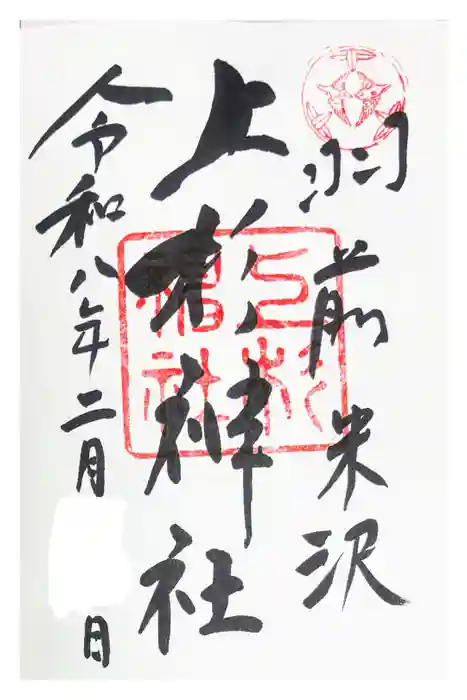 羽前米沢
上杉神社
上杉
稲社
令和八年二月
日